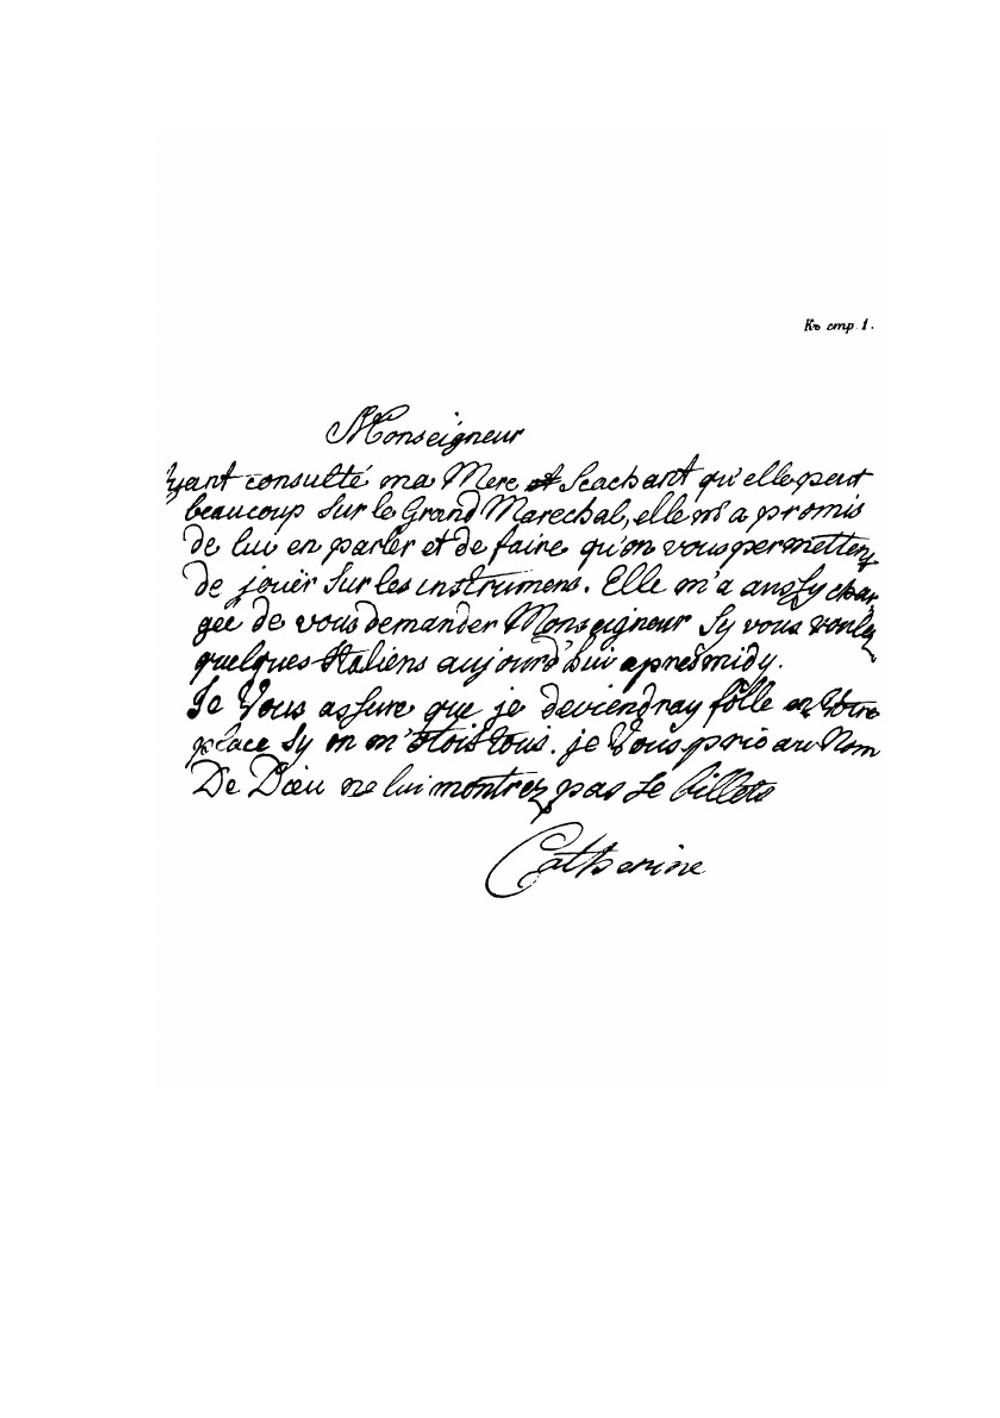 Къ стр. 1.
Monseigneur
Ayant consulté ma Mere et Scachant qu'elle peut
beaucoup sur le Grand Marechal, elle m'a promis
de lui en parler et de faire qu'on vous permettens
de jouër sur les instrumens. Elle m'a aussy char
gée de vous demander Monseigneur sy vous voulez
quelques Italiens aujourd'hui apresmidy.
Je Vous assure que je deviendray folle en Votre
place sy on m'otois tous. je Vous prie au Nom
De Dieu ne lui montrez pas se billets
Catherine